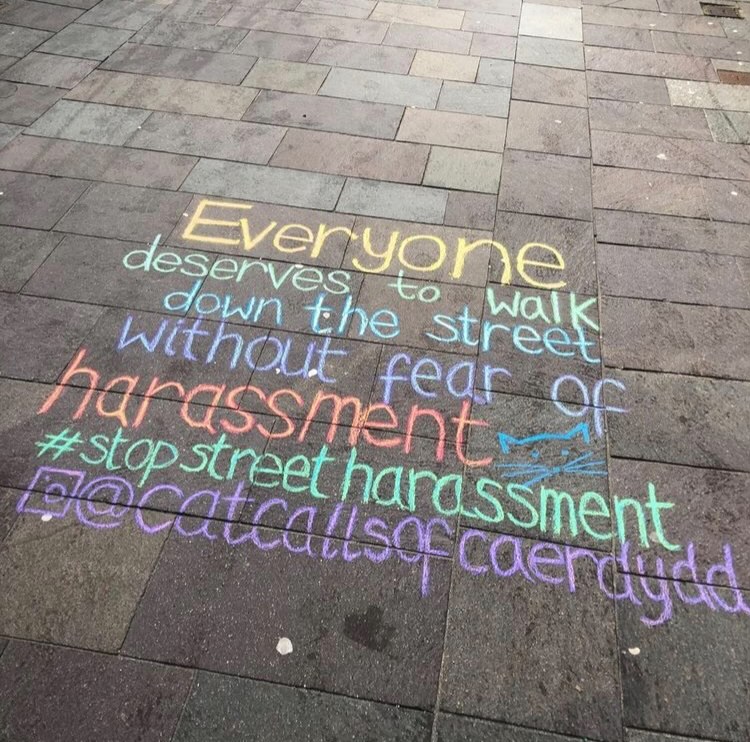 Everyone
deserves to walk
down the street
without fear of
harassment
#stopstreetharassment
@catcallsofcaerdydd